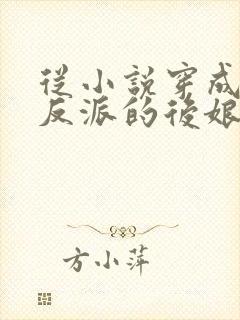 從小說穿成
反派的後娘
方小萍